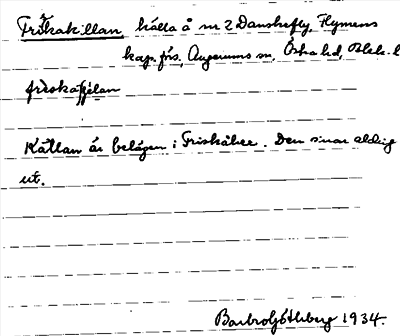 Friskakällan, källa å nr 2 Danskefly, Flymens
kap. förs., Augerums sn, Östra hd, Blek. l.
Källan är belägen i Friskakärr. Den sinar aldrig
ut.
Barbro Götheberg 1934.